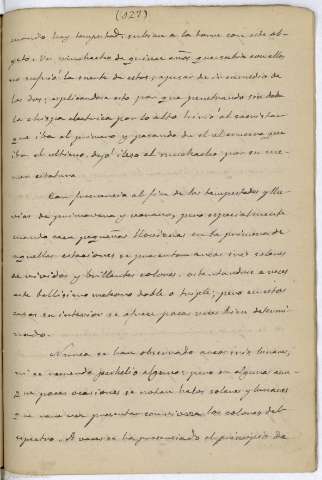 (127)
cuando hay tempestad, subian a la torre con este ob-
jeto. Un muchacho de quince años que subia con ellos
no sufrió la suerte de estos, apesar de ir en medio de
los dos; explicandose esto por que penetrando sin duda
la chispa electrica por lo alto hirió al sacristan
que iba el primero y pasando de el al
iba el ultimo, dejó ileso al muchacho por su me-
nor estatura.
Con frecuencia al fin de las tempestades y llu-
vias de primavera y verano, pero especialmente
cuando caen pequeñas lloviznas en la primera de
aquellas estaciones se presentan arcos iris solares
de vividos y brillantes colores, ostentandose a veces
este bellisimo meteoro doble o triple; pero en estos
casos en interior se ofrece pocas veces bien determi-
nado.
Nunca se han observado arcos iris lunares,
ni se recuerda parhelio alguno; pero en algunas aun-
que pocas ocasiones se notan halos solares y lunares
que rara vez presentan los colores del
espectro. A veces se ha presenciado el principio de